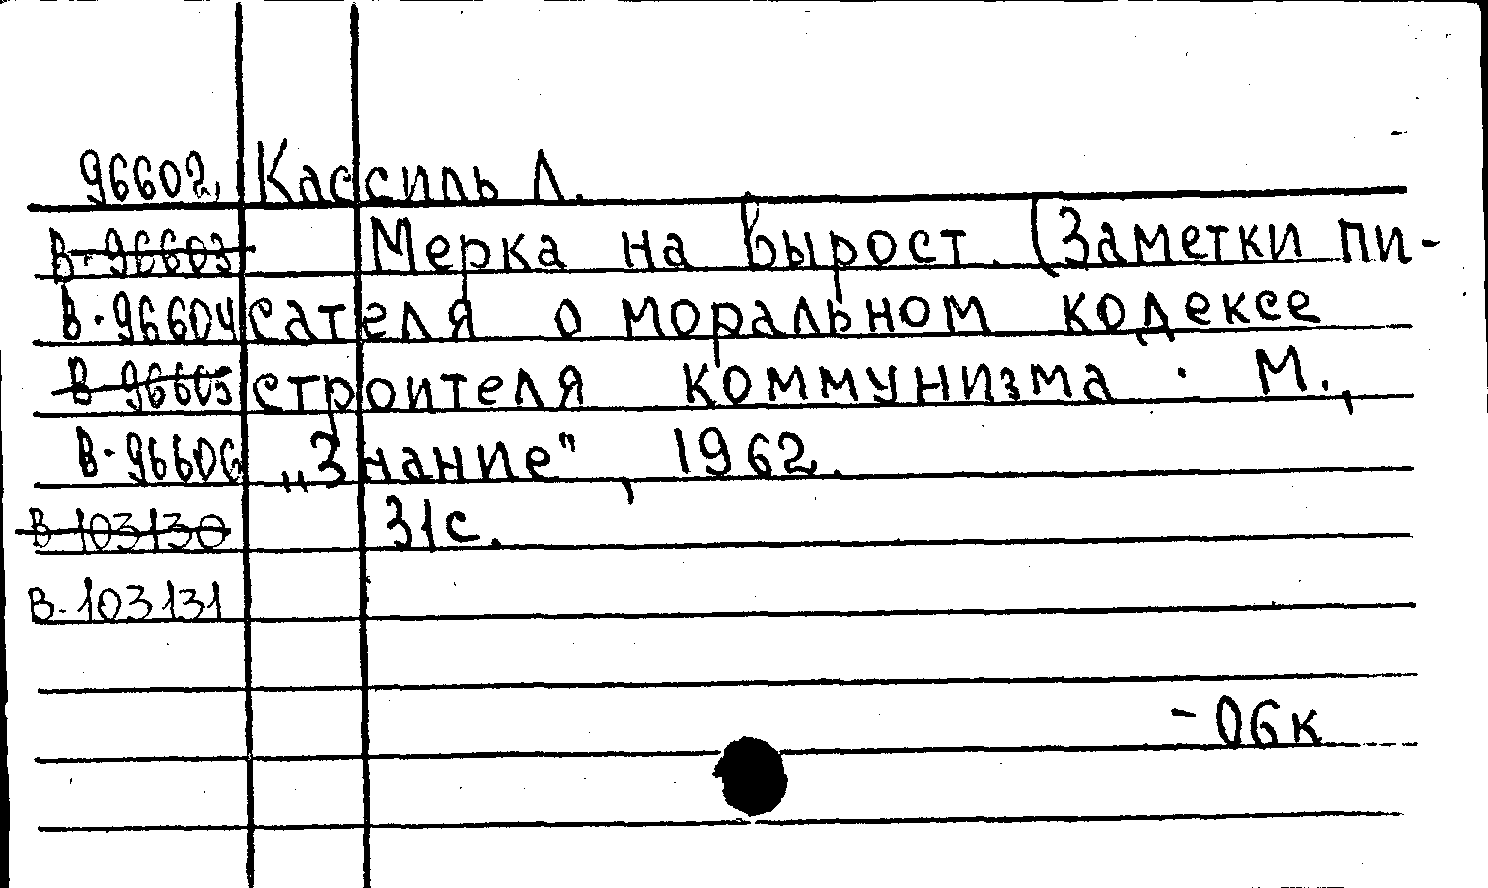 96602, Кассиль Л.
В-96603 Мерка на вырост. (Заметки пи-
В-96604 сателя о моральном кодексе
В-96605 строителя коммунизма. М.,
В-96606 „Знание", 1962.
В-103130 31с.
В-103131
-06к